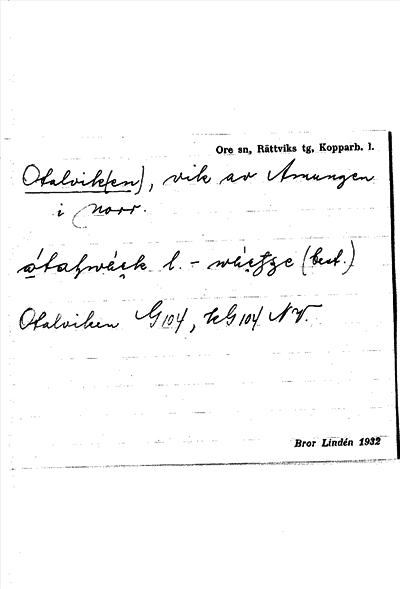 Ore sn, Rättviks tg, Kopparb. l.
Otalvik(en), vik av Amungen
i Norr.
l. - (best.)
Otalviken G 104, KG 104 NV.
Bror Lindén 1932